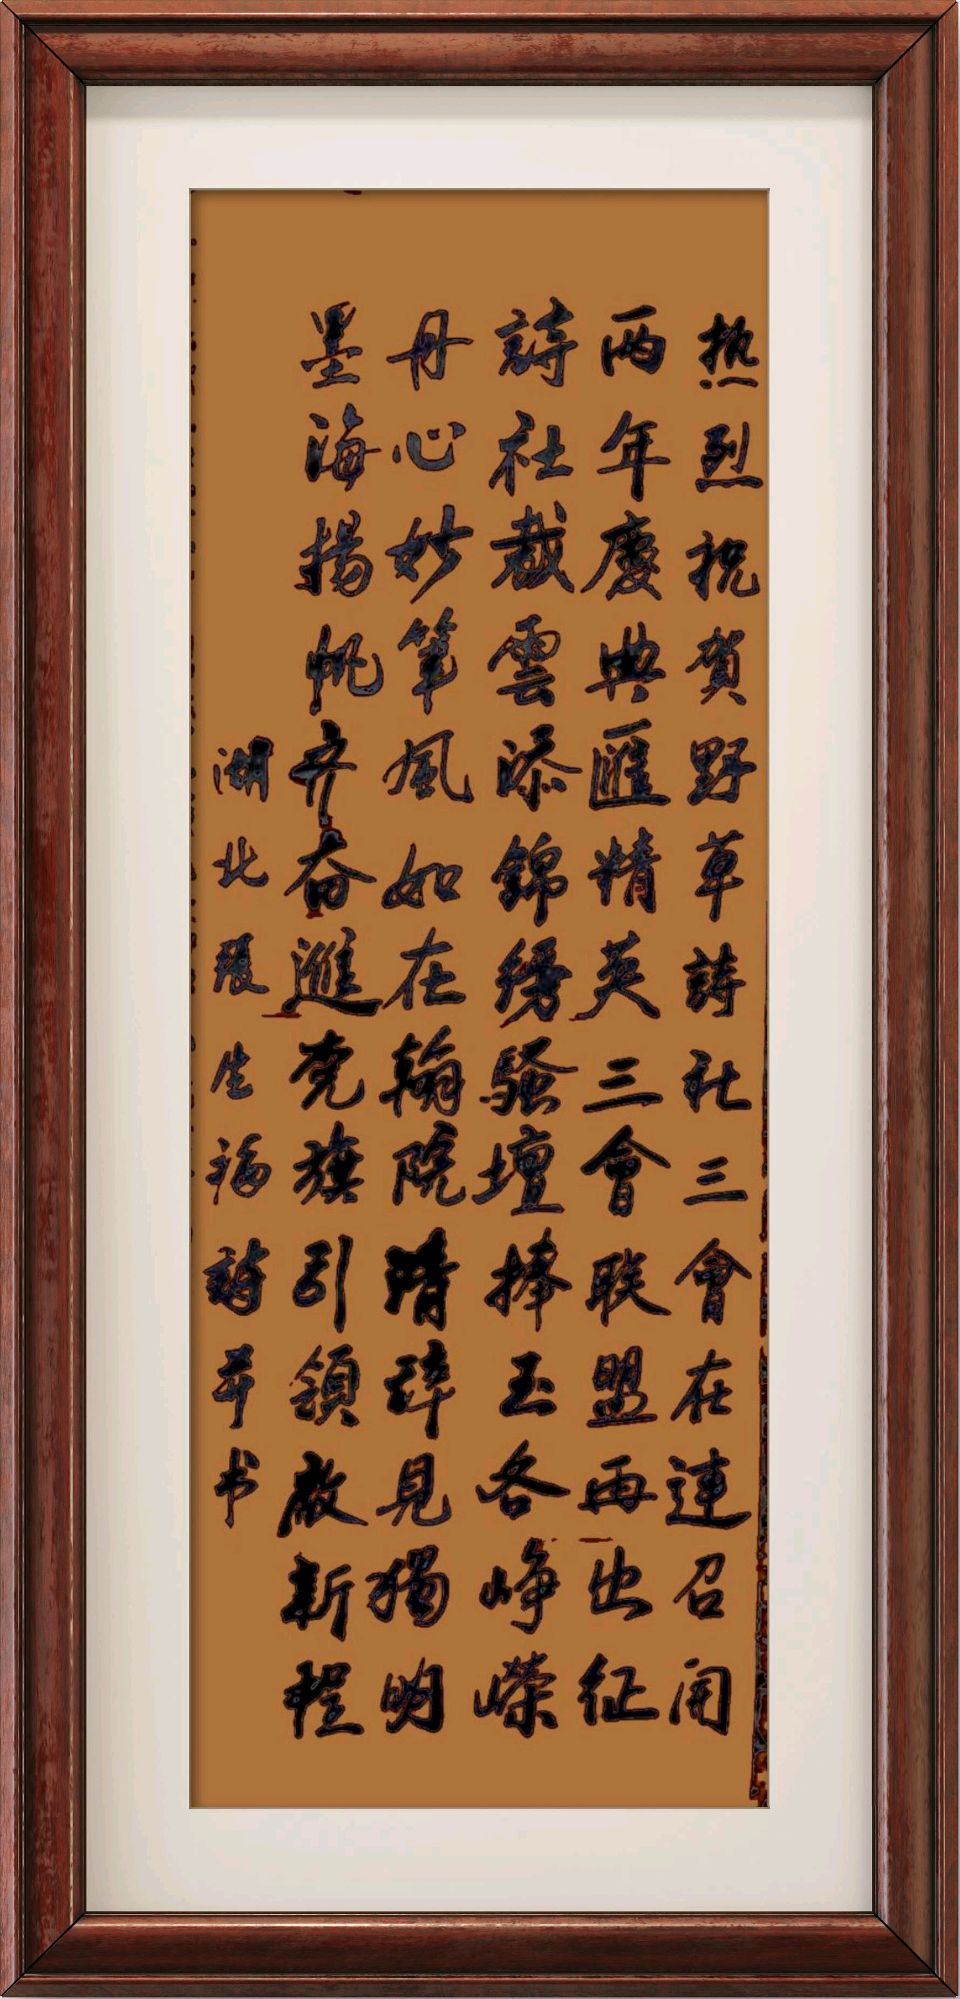 热烈祝贺野草詩社三會在連召開
两年慶典匯精英三會联盟再出征
詩社裁雲添錦绣騷壇捧玉各峥嶸
丹心妙笔風如在翰院清碎見獨明
墨海揚帆齐奋進党旗引領啟新程
湖北張生福詩并书